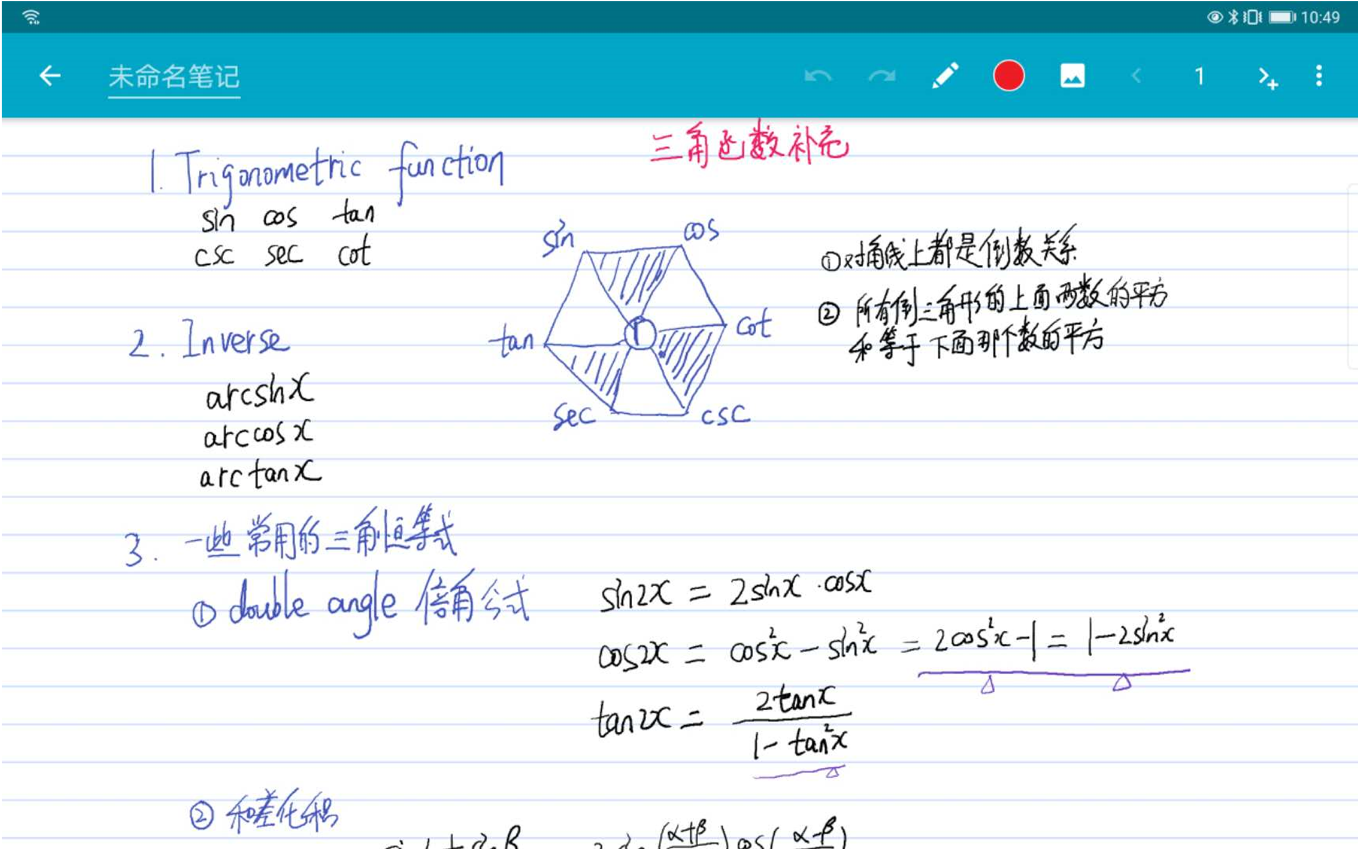 10:49
未命名笔记
1
三角函数补充
1. Trigonometric function
sin cos tan
csc sec cot
sin cos
tan 1 cot
sec csc
①对角线上都是倒数关系
② 所有倒三角形的上面两数的平方
和等于下面那个数的平方
2. Inverse
arcsinx
arccosx
arctanx
3. 一些常用的三角恒等式
① double angle 倍角公式
sin2x = 2sinx·cosx
cos2x = cos²x - sin²x = 2cos²x - 1 = 1 - 2sin²x
tan2x = 2tanx / 1 - tan²x
② 和差化积